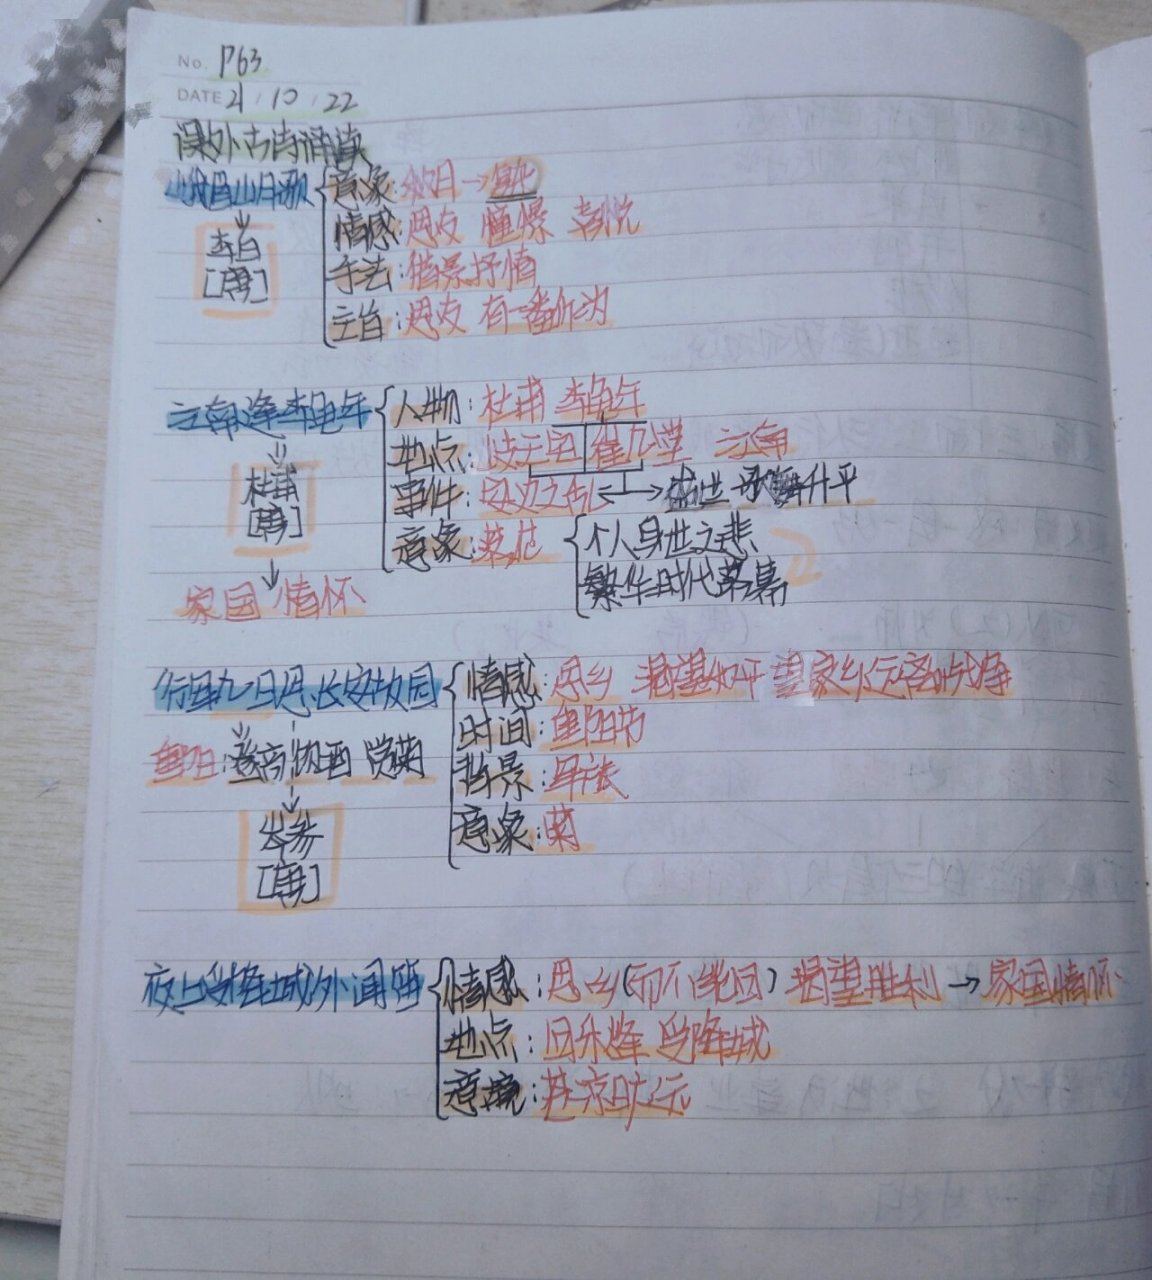 No. P63
DATE 21 / 10 / 22
课外古诗诵读
峨眉山月歌 意象:秋月→
李白 情感:思友 憧憬 喜悦
[唐] 手法:借景抒情
主旨:思友 有一番作为
江南逢李龟年 人物:杜甫 李龟年
地点:岐王宅 崔九堂 江南
杜甫 事件:安史之乱←→盛世 歌舞升平
[唐] 意象:落花 个人身世之悲
家国情怀 繁华时代落幕
行军九日思长安故园 情感:思乡 渴望和平
时间:重阳节
重阳:登高 饮酒 赏菊 背景:军旅
岑参 意象:菊
[唐]
夜上受降城外闻笛 情感:思乡(而不能回) 渴望胜利→家国情怀
地点:回乐烽 受降城
意境:苍凉旷远